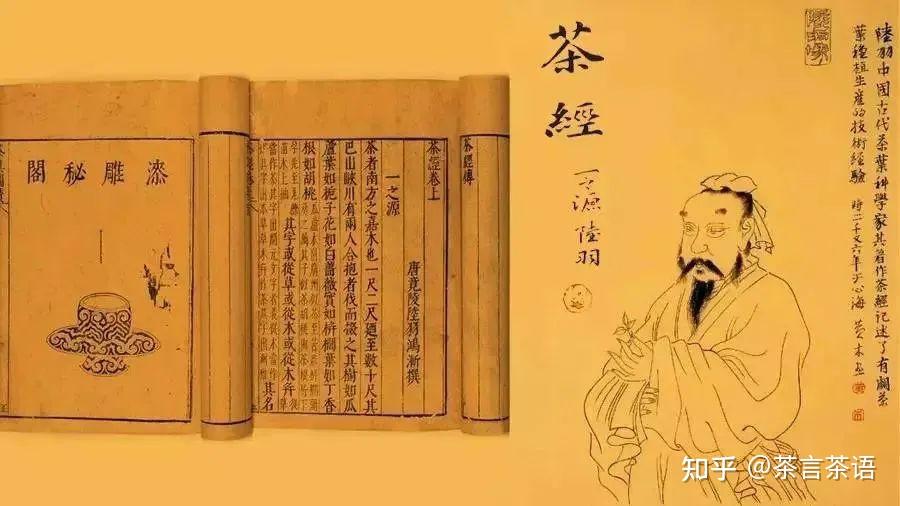 陸羽中國古代茶葉科學家其著作茶經記述了有關茶
葉種植生産的技術經驗 時二千又六年于心海
茶經
一之源 陸羽
茶經卷上
唐竟陵陸羽鴻漸撰
一之源
茶者南方之嘉木也一尺二尺廼至數十尺其
巴山峽川有兩人合抱者伐而掇之其樹如瓜
蘆葉如梔子花如白薔薇實如栟櫚葉如丁香
根如胡桃
其字或從草或從木或從木幷
其名
漆雕秘閣
知乎 @茶言茶语